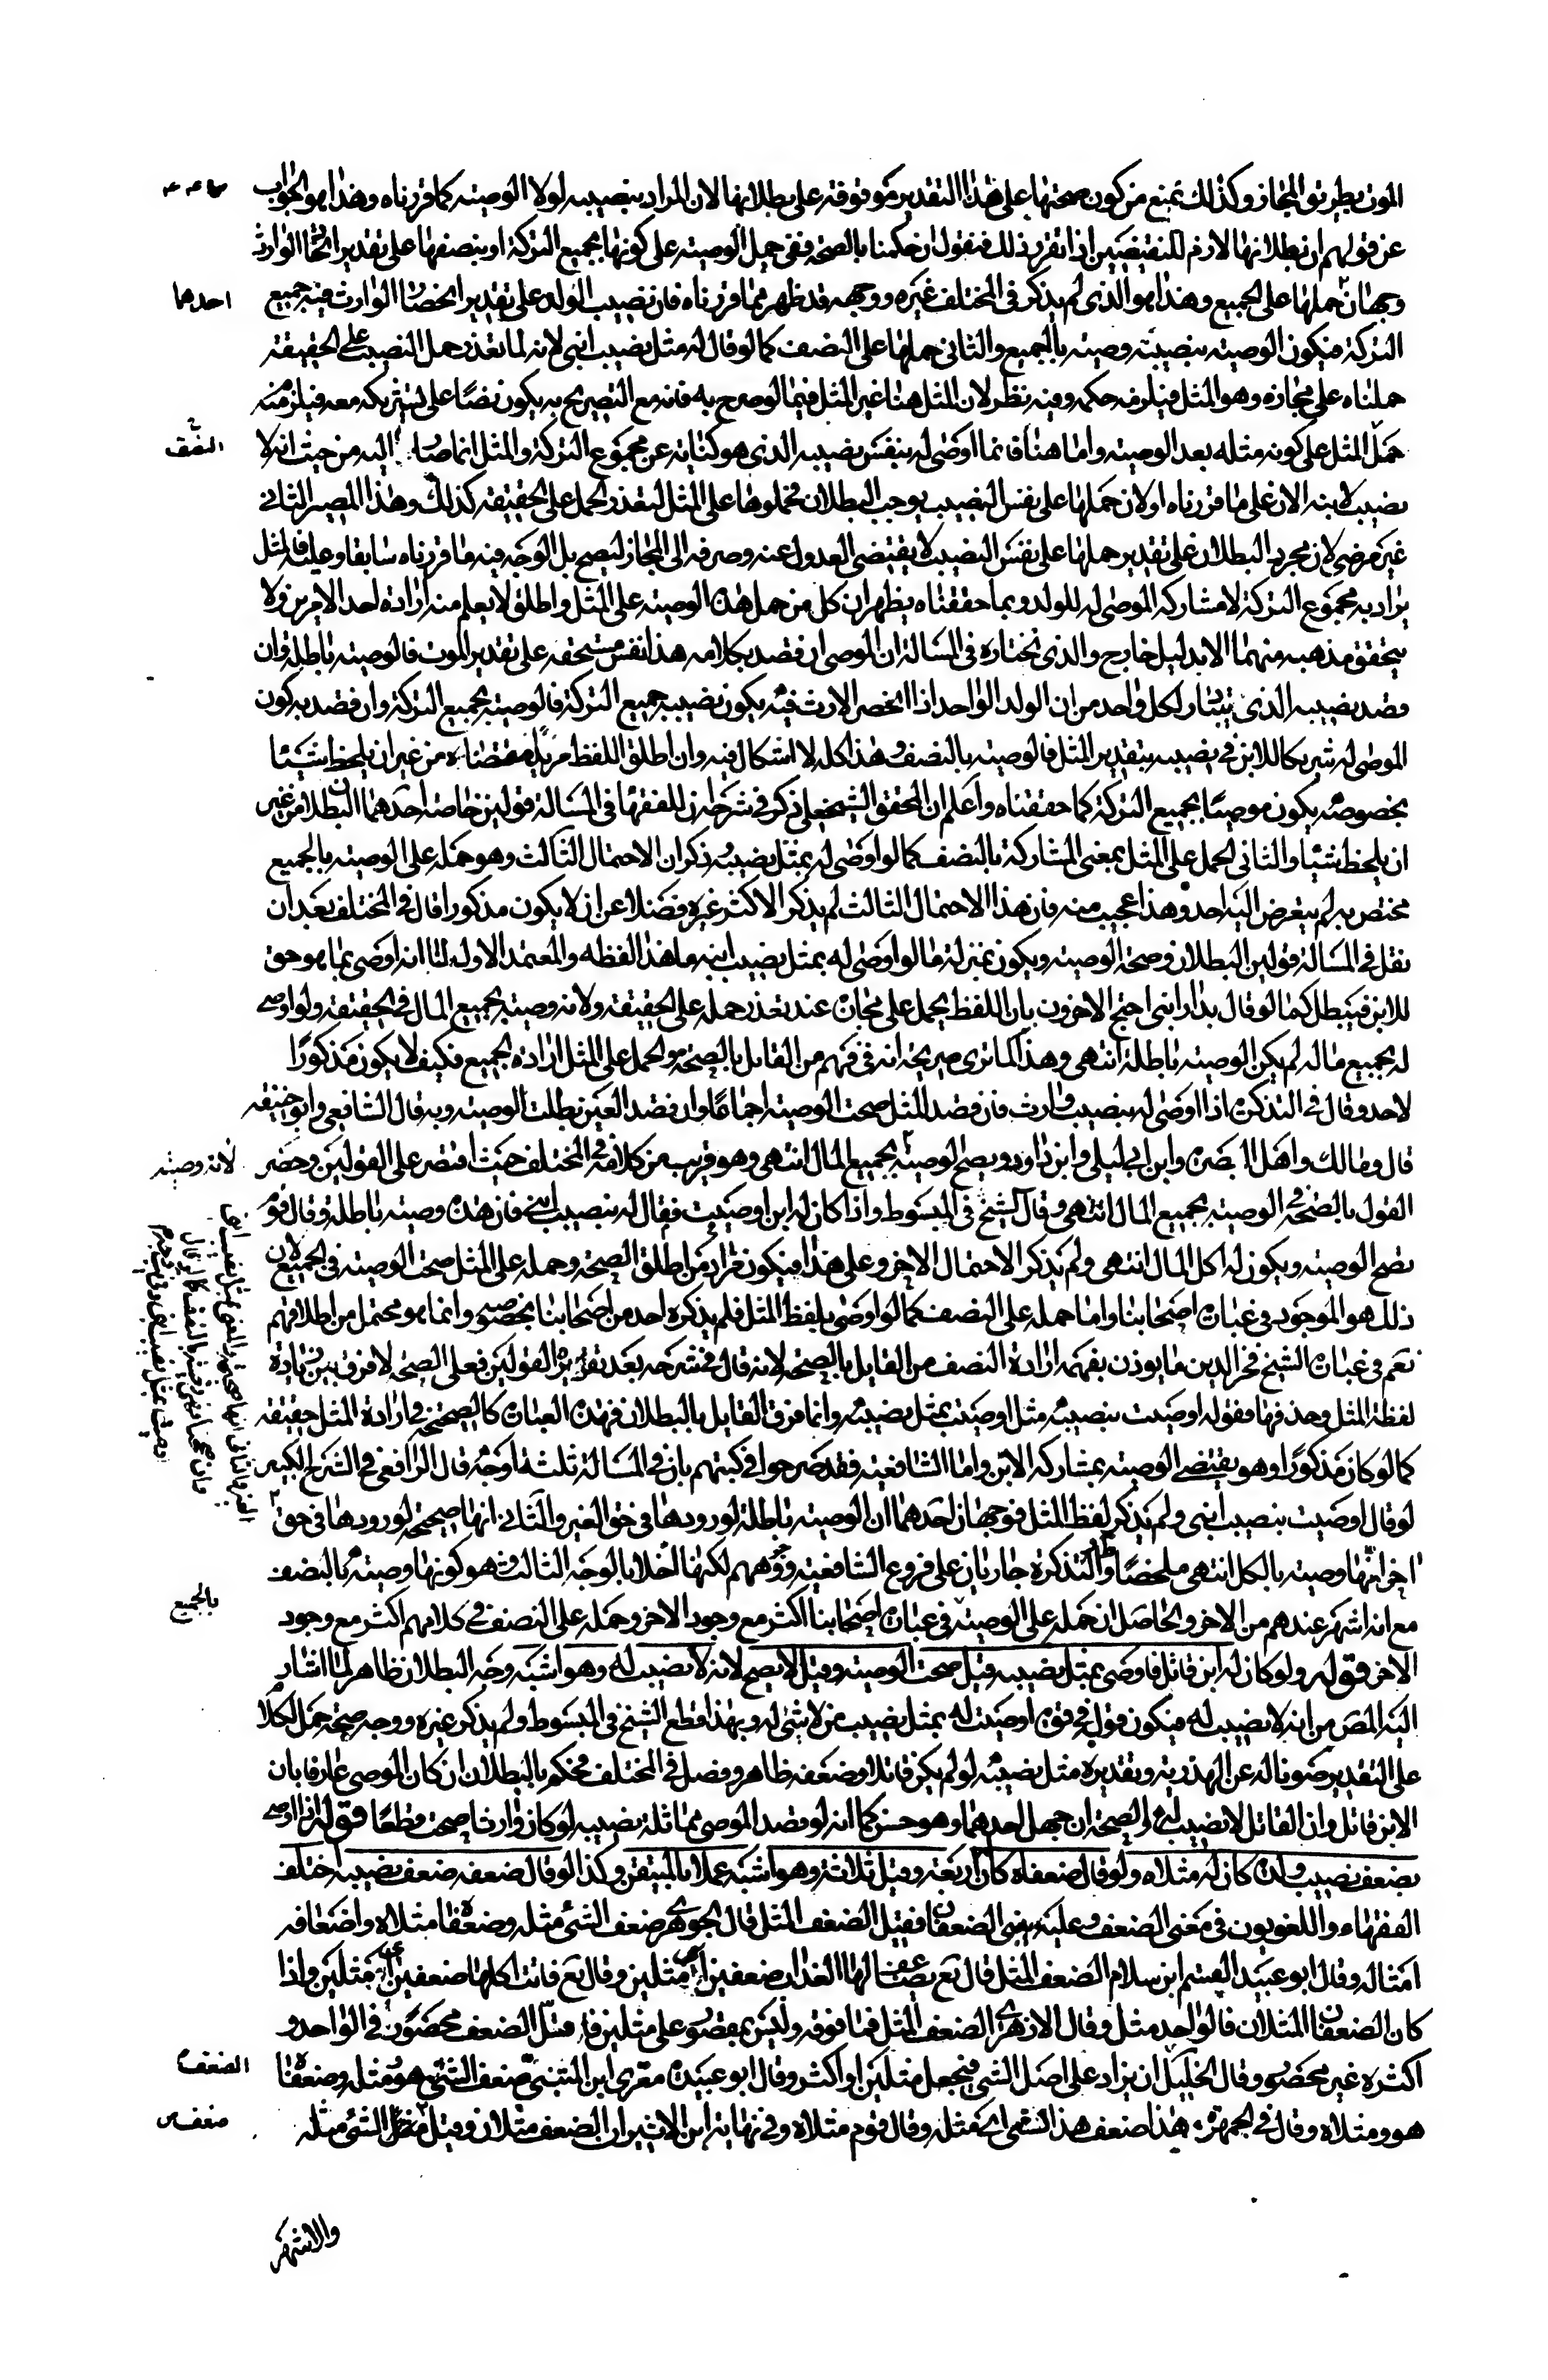 الموت بطريق المجاز وكذلك نمنع من كون صحتها على هذا التقدير موقوفة على بطلانها لان المراد بنصيبه لولا الوصية كما قررناه وهذا هو الجواب
عن قولهم ان بطلانها لازم للنقيضين اذا تقرر ذلك فنقول ان حكمنا بالصحة ففي حمل الوصية على كونها بجميع التركة او بنصفها على تقدير اتحاد الوارث
وجهان حملها على الجميع وهذا هو الذى لم يذكر فى المختلف غيره ووجهه قد ظهر مما قررناه فان نصيب الولد على تقدير انحصار الوارث فيه جميع
احدهما
التركة فيكون الوصية بنصيبه وصية بالجميع والثانى حملها على النصف كما لو قال له مثل نصيب ابنى لانه لما تعذر حمل النصيب على الحقيقة
حملناه على مجازه وهو المثل فيلزمه حكمه وفيه نظر لان المثل هنا غير المثل فيما لو صرح به فانه مع التصريح به يكون نصا على تشريكه معه فيلزم منه
حمل المثل على كونه مثله بعد الوصية واما هنا فانما اوصى له بنفس نصيبه الذى هو كناية عن مجموع التركة والمثل انما صار اليه من حيث انه لا
نصيب لابنه الان على ما قررناه او لان حملها على نفس النصيب يوجب البطلان فحملوها على المثل لتعذر الحمل على الحقيقة كذلك وهذا المصير الثانى
غير مرضى لان مجرد البطلان على تقدير حملها على نفس النصيب لا يقتضى العدول عنه وصرفه الى المجاز لتصح بل الوجه فيه ما قررناه سابقا وعليه فالمثل
يراد به مجموع التركة لا مشاركة الموصى له للولد وبما حققناه يظهر ان كل من حمل هذه الوصية على المثل واطلق لا يعلم منه ارادة احد الامرين ولا
يتحقق مذهبه منهما الا بدليل خارج والذى نختاره فى المسالة ان الموصى ان قصد بكلامه هذا نفس مستحقه على تقدير الموت فالوصية باطلة وان
قصد نصيبه الذى لكل واحد من ان الولد الواحد اذا انحصر الارث فيه يكون نصيبه جميع التركة فالوصية بجميع التركة وان قصد به كون
الموصى له شريكا للابن فى نصيبه بتقدير المثل فالوصية بالنصف وهذا كله لا اشكال فيه وان اطلق اللفظ مريدا مقتضاه من غير ان يلحظ شيئا
بخصوصه يكون موصيا بجميع التركة كما حققناه واعلم ان المحقق الشيخ على ذكر فى شرحه ان للفقها فى المسالة قولين خاصة احدهما البطلان من غير
ان يلحظ شيئا والثانى الحمل على المثل بمعنى المشاركة بالنصف كما لو اوصى له بمثل نصيبه وذكر ان الاحتمال الثالث وهو حمله على الوصية بالجميع
مختص به لم يتعرض اليه احد وهذا عجيب منه فان هذا الاحتمال الثالث لم يذكر الاكثر غيره فضلا عن ان لا يكون مذكورا قال فى المختلف بعد ان
نقل فى المسالة قولين البطلان وصحة الوصية ويكون بمنزلة ما لو اوصى له بمثل نصيب ابنه ما هذا لفظه والمعتمد الاول لنا انه اوصى بما هو حق
للابن فيبطل كما لو قال بدار ابنى احتج الاخرون بان اللفظ يحمل على مجازه عند تعذر حمله على الحقيقة ولانه وصية بجميع المال فى الحقيقة ولو اوصى
له بجميع ماله لم يكن الوصية باطلة انتهى وهذا كما ترى صريح انه فى فهم من القائل بالصحة والحمل على المثل ارادة الجميع فكيف لا يكون مذكورا
لاحد وقال فى التذكرة اذا اوصى له بنصيب وارث فان قصد المثل صحت الوصية اجماعا وان قصد العين بطلت الوصية وبه قال الشافعي وابو حنيفة
قال ومالك واهل البصرة وابن ابى ليلى وابن داود ويصح الوصية بجميع المال انتهى وهو قريب من كلامه فى المختلف حيث اقتصر على القولين وحصر
لانه وصية
القول بالصحة فى الوصية بجميع المال انتهى وقال الشيخ فى المبسوط واذا كان له ابن اوصيت فقال له بنصيب ابنى فان هذه وصية باطلة وقال قوم
تصح الوصية ويكون له كل المال انتهى ولم يذكر الاحتمال الاخر وعلى هذا فيكون مراد من اطلق الصحة وحمله على المثل صحت الوصية فى الجميع لان
ذلك هو الموجود فى عبارة اصحابنا واما حمله على النصف كما لو اوصى بلفظ المثل فلم يذكره احد من اصحابنا بخصوصه وانما هو محتمل من اطلاقهم
نعم فى عبارة الشيخ فخر الدين ما يوذن بفهمه ارادة النصف من القايل بالصحة لانه قال فى شرحه بعد تقرير القولين فعلى الصحة لا فرق بين زيادة
لفظة المثل وحذفها فقوله اوصيت بنصيبه مثل اوصيت بمثل نصيبه وانما فرق القايل بالبطلان فهذه العبارة كالصريحة فى ارادة المثل حقيقة
كما لو كان مذكورا وهو يقتضى الوصية بمشاركة الابن واما الشافعية فقد صرحوا فى كتبهم بان فى المسالة ثلثة اوجه قال الرافعي فى الشرح الكبير
لو قال اوصيت بنصيب ابنى ولم يذكر لفظ المثل فوجهان احدهما ان الوصية باطلة لورودها فى حق الغير والثانى انها صحيحة لورودها فى حق
اخر انها وصية بالكل انتهى ملخصا والتذكرة جاريان على فروع الشافعية ووجوههم لكنهما اخلا بالوجه الثالث وهو كونها وصية بالنصف
مع انه اشهر عندهم من الاخر والحاصل ان حمله على الوصية فى عبارة اصحابنا اكثر مع وجود الاخر وحمله على النصف فى كلامهم اكثر مع وجود
بالجميع
الاخر قوله ولو كان له ابن قاتل فاوصى بمثل نصيبه قيل صحت الوصية وقيل لا يصح لانه لا نصيب له وهو اشبه وجه البطلان ظاهر لما اشار
اليه المص من انه لا نصيب له فيكون قوله فى قوة اوصيت له بمثل نصيب من لا شى له وبهذا قطع الشيخ فى المبسوط ولم يذكر غيره ووجه صحته حمل الكلام
على التقدير صونا له عن الهذرية وتقديره مثل نصيبه لو لم يكن قاتلا وضعفه ظاهر وفصل فى المختلف فحكم بالبطلان ان كان الموصى عارفا بان
الابن قاتل وان القاتل لا نصيب له والصحة ان جهل احدهما وهو حسن كما انه لو قصد الموصى مماثلة نصيبه لو كان وارثا صحت قطعا قوله اذا اوصى
بضعف نصيب ولده كان له مثلاه ولو قال ضعفاه كان اربعة وقيل ثلاثة وهو اشبه عملا بالمتيقن وكذا لو قال ضعفه ضعف نصيبه اختلف
الفقهاء واللغويون فى معنى الضعف وعليه يبنى الضعفان فقيل الضعف المثل قال الجوهرى ضعف الشئ مثله وضعفاه مثلاه واضعافه
امثاله وقال ابو عبيد القسم ابن سلام الضعف المثل قال تع يضاعف لها العذاب ضعفين اى مثلين وقال تع فاتت اكلها ضعفين اى مثلين واذا
كان الضعفان المثلان فالواحد مثل وقال الازهرى الضعف المثل فما فوقه وليس بمقصور على مثلين فاقل الضعف محصور فى الواحد و
اكثره غير محصور وقال الخليل ان يزاد على اصل الشى فيجعل مثلين او اكثر وقال ابو عبيدة معمر ابن المثنى ضعف الشى هو مثله وضعفاه
الضعف
هو ومثلاه وقال فى الجمهرة هذا ضعف هذا الشى اى مثله وقال قوم مثلاه وفى نهاية ابن الاثير ان الضعف مثلان وقيل الشئ مثله
والاشهر